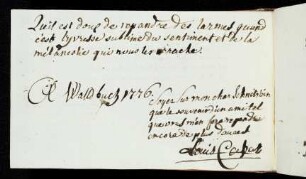 Qu'il est doux de repandre des larmes, quand
c'est l'yvresse sublime du sentiment et de la
mélancolie qui nous les arrache!
Waldbach 1776.
Soyez sur mon cher
que le souvenir d'un ami tel
que vous m'en fera repandre
encore de plus douces
Louis